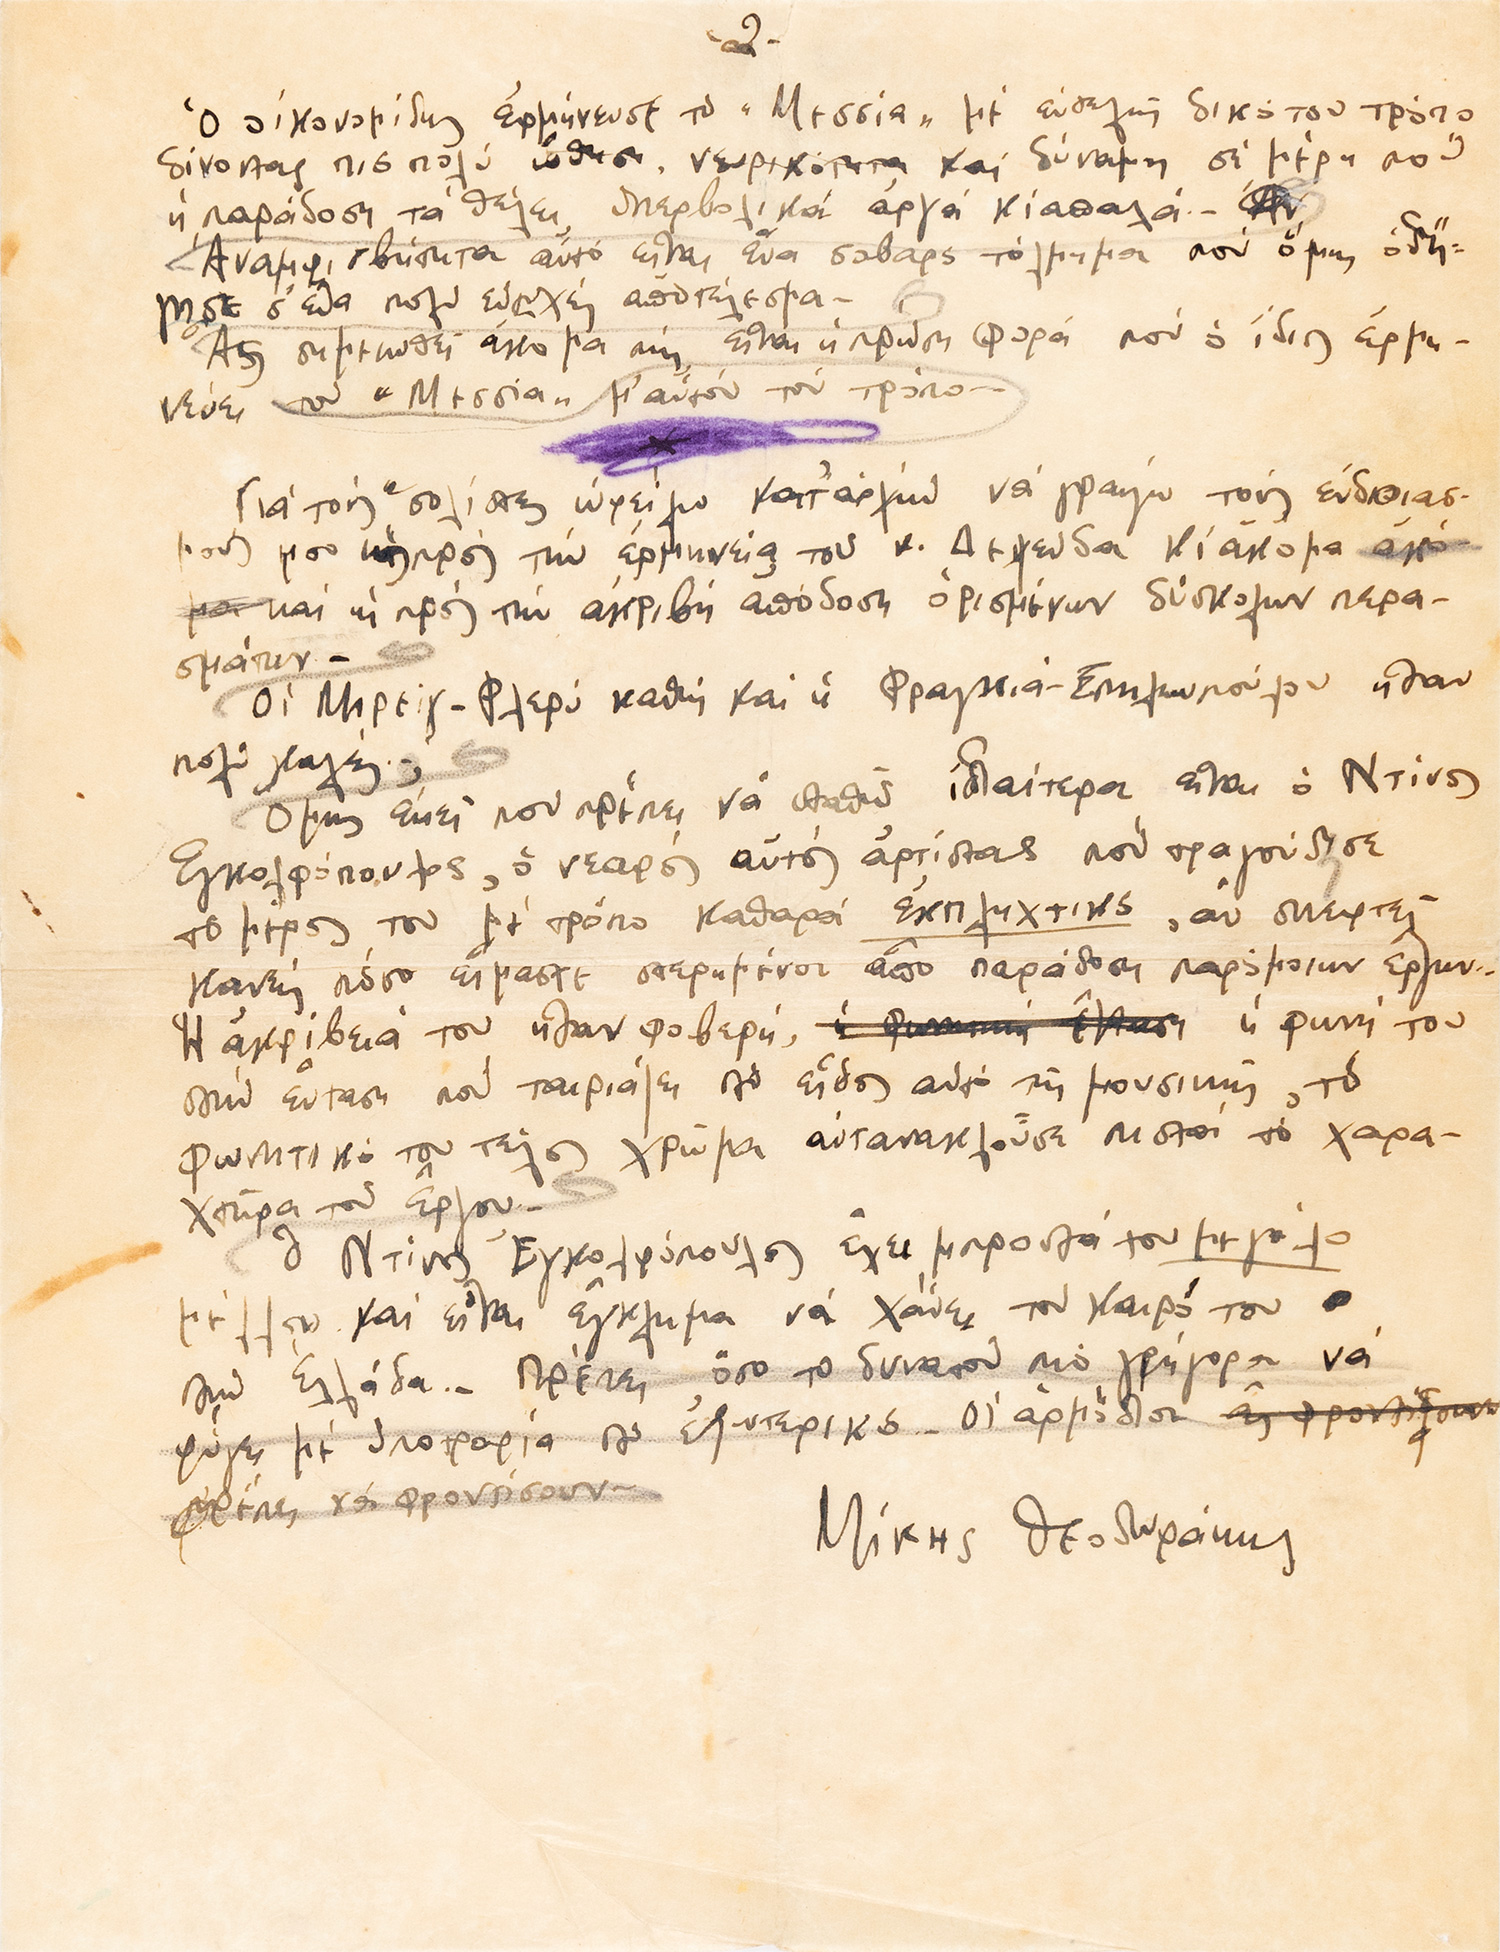 -2-
Ὁ Οἰκονομίδης ἑρμήνευσε τὸ "Μεσσία" μὲ ἐντελῶς δικό του τρόπο
δίνοντας πιὸ πολύ ὤθηση, νευρικότητα καί δύναμη σὲ μέρη ποὺ
ἡ παράδοση τὰ θέλει ὑπερβολικά ἀργά κι ἁπαλά.-
Ἀναμφισβήτητα αὐτό εἶναι ἕνα σοβαρό τόλμημα πού ὅμως ὁδή-
γησε σ' ἕνα πολύ εὐτυχές ἀποτέλεσμα-
Ἂς σημειωθεῖ ἀκόμα πώς εἶναι ἡ πρώτη φορά πού ὁ ἴδιος ἑρμη-
νεύει τόν "Μεσσία" μ' αὐτόν τόν τρόπο-
Γιά τούς σολίστες ὠφείλω κατ' ἀρχήν νά γράψω τούς ἐνδοιασ-
μούς μου ὡς πρός τήν ἑρμηνεία τοῦ κ. Δεψεύδα κι ἀκόμα ἀκό-
μα καί ὡς πρός τήν ἀκριβῆ ἀπόδοση ὁρισμένων δύσκολων περα-
σμάτων-
Οἱ Φλερύ καθώς καί ἡ Φραγκιά- ἦταν
πολύ καλές.
Ὅμως ἐκεῖ πού πρέπει νά σταθῶ ἰδιαίτερα εἶναι ὁ Ντίνος
Εγκολφόπουλος, ὁ νεαρός αὐτός ἀρτίστας πού τραγούδησε
τό μέρος του μέ τρόπο καθαρά ἐκπληχτικό, ἄν σκεφτεῖ
κανείς πόσο εἴμαστε στερημένοι ἀπό παράδοση παρόμοιων ἔργων..
Ἡ ἀκρίβειά του ἦταν φοβερή, ἡ φωνητική ἔνταση ἡ φωνή του
στήν ἔνταση πού ταιριάζει στό εἶδος αὐτό τῆς μουσικῆς, τό
φωνητικό του τέλος χρῶμα ἀντανακλοῦσε πιστά τό χαρα-
χτῆρα τοῦ ἔργου.-
Ὁ Ντίνος Ἐγκολφόπουλος ἔχει μπροστά του μεγάλο
μέλλον καί εἶναι ἔγκλημα νά χάνει τόν καιρό του
στήν Ἑλλάδα.- Πρέπει, ὅσο τό δυνατόν πιό γρήγορα νά
φύγει μέ ὑποτροφία στό ἐξωτερικό- Οἱ ἁρμόδιοι ἄς φροντίσουν
πρέπει νά φροντίσουν-
Μίκης Θεοδωράκης